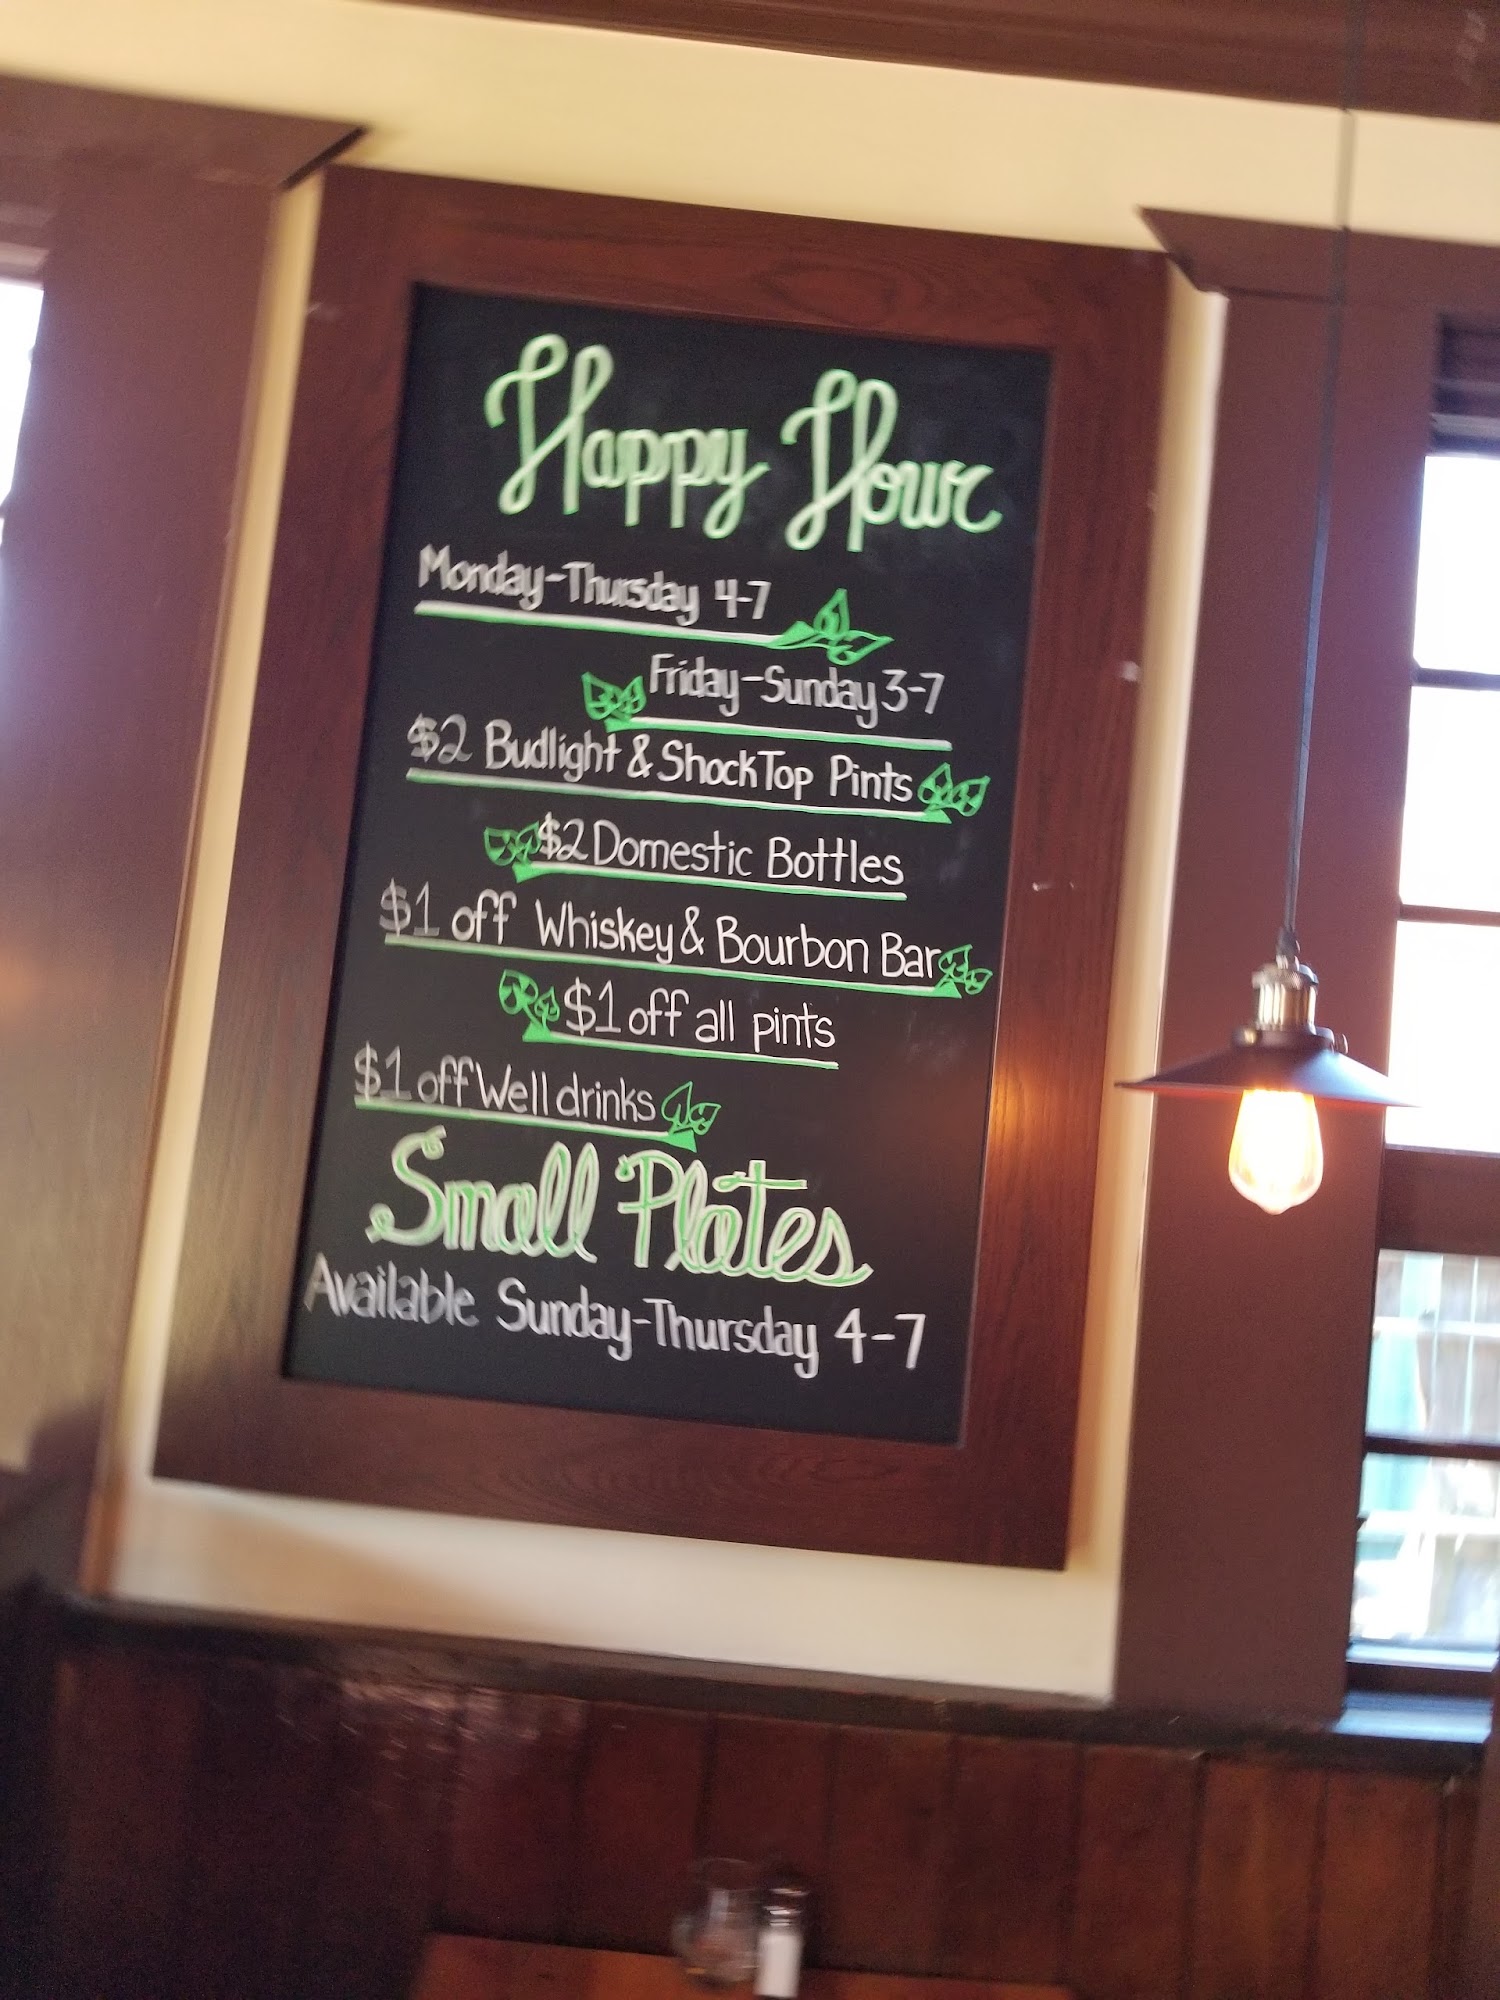 Happy Hour
Monday-Thursday 4-7
Friday-Sunday 3-7
$2 Budlight & Shock Top Pints
$2 Domestic Bottles
$1 off Whiskey & Bourbon Bar
$1 off all pints
$1 off Well drinks
Small Plates
Available Sunday-Thursday 4-7